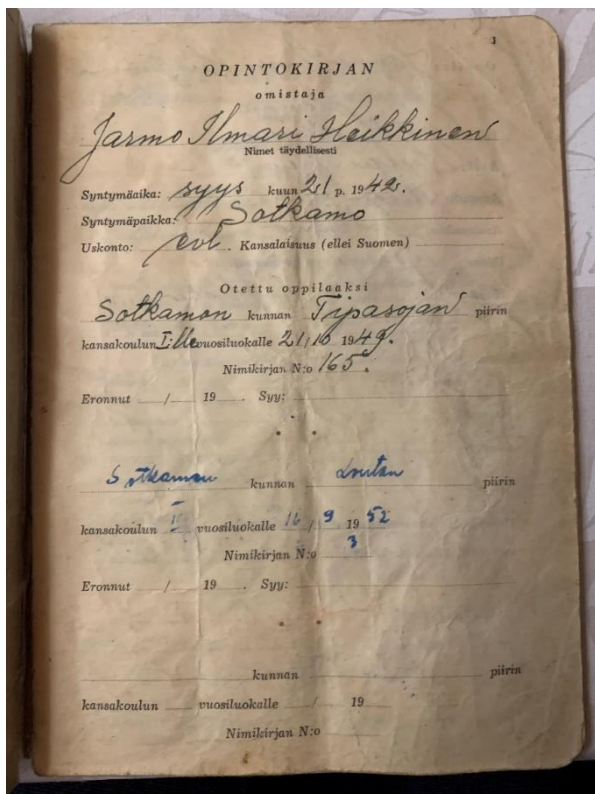 1
OPINTOKIRJAN
omistaja
Jarmo Ilmari Heikkinen
Nimet täydellisesti
Syntymäaika: syys kuun 21 p. 1942.
Syntymäpaikka: Sotkamo
Uskonto: evl. Kansalaisuus (ellei Suomen)
Otettu oppilaaksi
Sotkamon kunnan Tipasojan piirin
kansakoulun I:lle vuosiluokalle 21/10 1949.
Nimikirjan N:o 165.
Eronnut / 19 . Syy:
Sotkamon kunnan piirin
kansakoulun vuosiluokalle 16/9 1952
Nimikirjan N:o 3
Eronnut / 19 . Syy:
kunnan piirin
kansakoulun vuosiluokalle / 19
Nimikirjan N:o